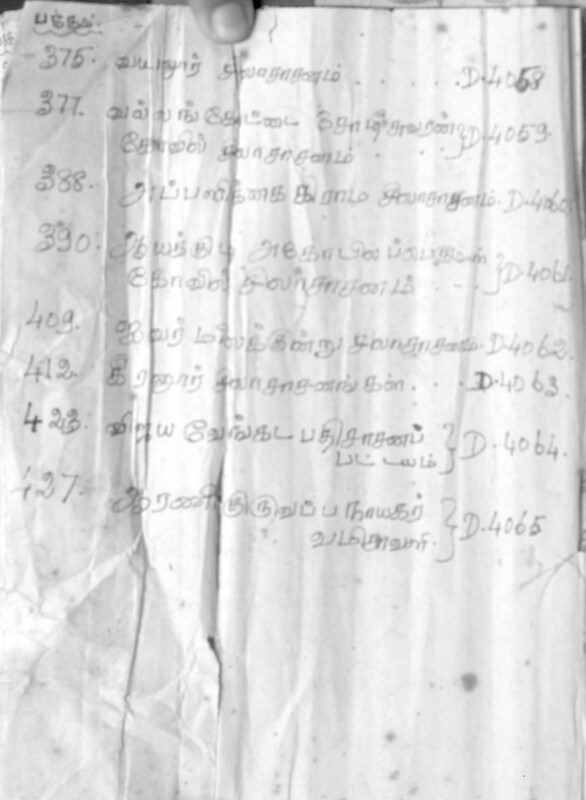 பக்கம்.
375. வயலூர் சிலாசாசனம் . . . . . D.4058
377. வல்லங்கோட்டை கோடீசுவரன்
கோவில் சிலாசாசனம் . . . . } D.4059.
388. அப்பலிக்கை கிராம சிலாசாசனம். D.4060.
390. ஆயக்குடி அகோபிலப்பெருமாள்
கோவில் சிலாசாசனம் . . . } D.4061.
409. ஐவர் மலைக்குன்று சிலாசாசனம். D.4062.
412. கீரனூர் சிலாசாசனங்கள் . . . D.4063.
423. விஜய வேங்கடபதி சாசனப்
பட்டயம் } D.4064.
427. ஆரணி திருவப்ப நாயகர்
வமிசாவளி. } D.4065